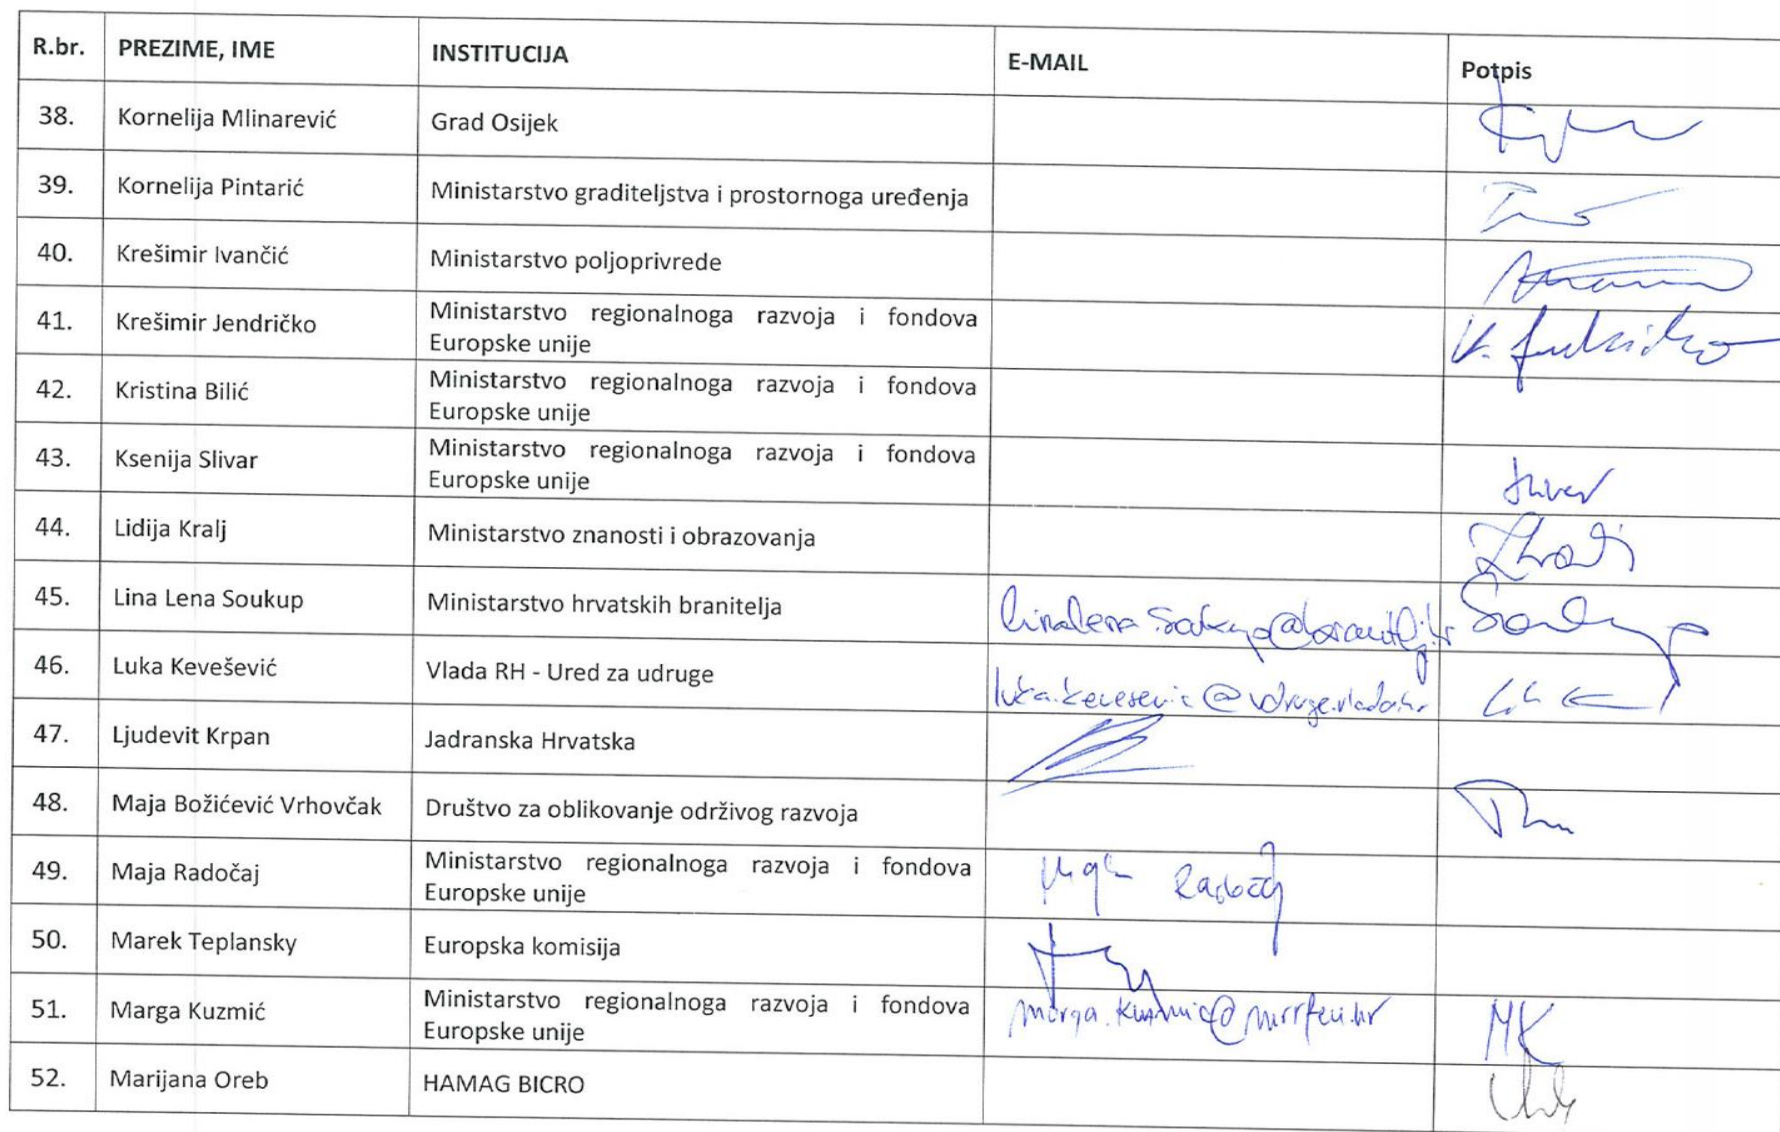 R.br. PREZIME, IME INSTITUCIJA E-MAIL Potpis
38. Kornelija Mlinarević Grad Osijek
39. Kornelija Pintarić Ministarstvo graditeljstva i prostornoga uređenja
40. Krešimir Ivančić Ministarstvo poljoprivrede
41. Krešimir Jendričko Ministarstvo regionalnoga razvoja i fondova
Europske unije
42. Kristina Bilić Ministarstvo regionalnoga razvoja i fondova
Europske unije
43. Ksenija Slivar Ministarstvo regionalnoga razvoja i fondova
Europske unije
44. Lidija Kralj Ministarstvo znanosti i obrazovanja
45. Lina Lena Soukup Ministarstvo hrvatskih branitelja
46. Luka Kevešević Vlada RH - Ured za udruge luka.kevesevic@udruge.vlada.hr
47. Ljudevit Krpan Jadranska Hrvatska
48. Maja Božićević Vrhovčak Društvo za oblikovanje održivog razvoja
49. Maja Radočaj Ministarstvo regionalnoga razvoja i fondova
Europske unije
50. Marek Teplansky Europska komisija
51. Marga Kuzmić Ministarstvo regionalnoga razvoja i fondova
Europske unije marga.kuzmic@mrrfeu.hr MK
52. Marijana Oreb HAMAG BICRO